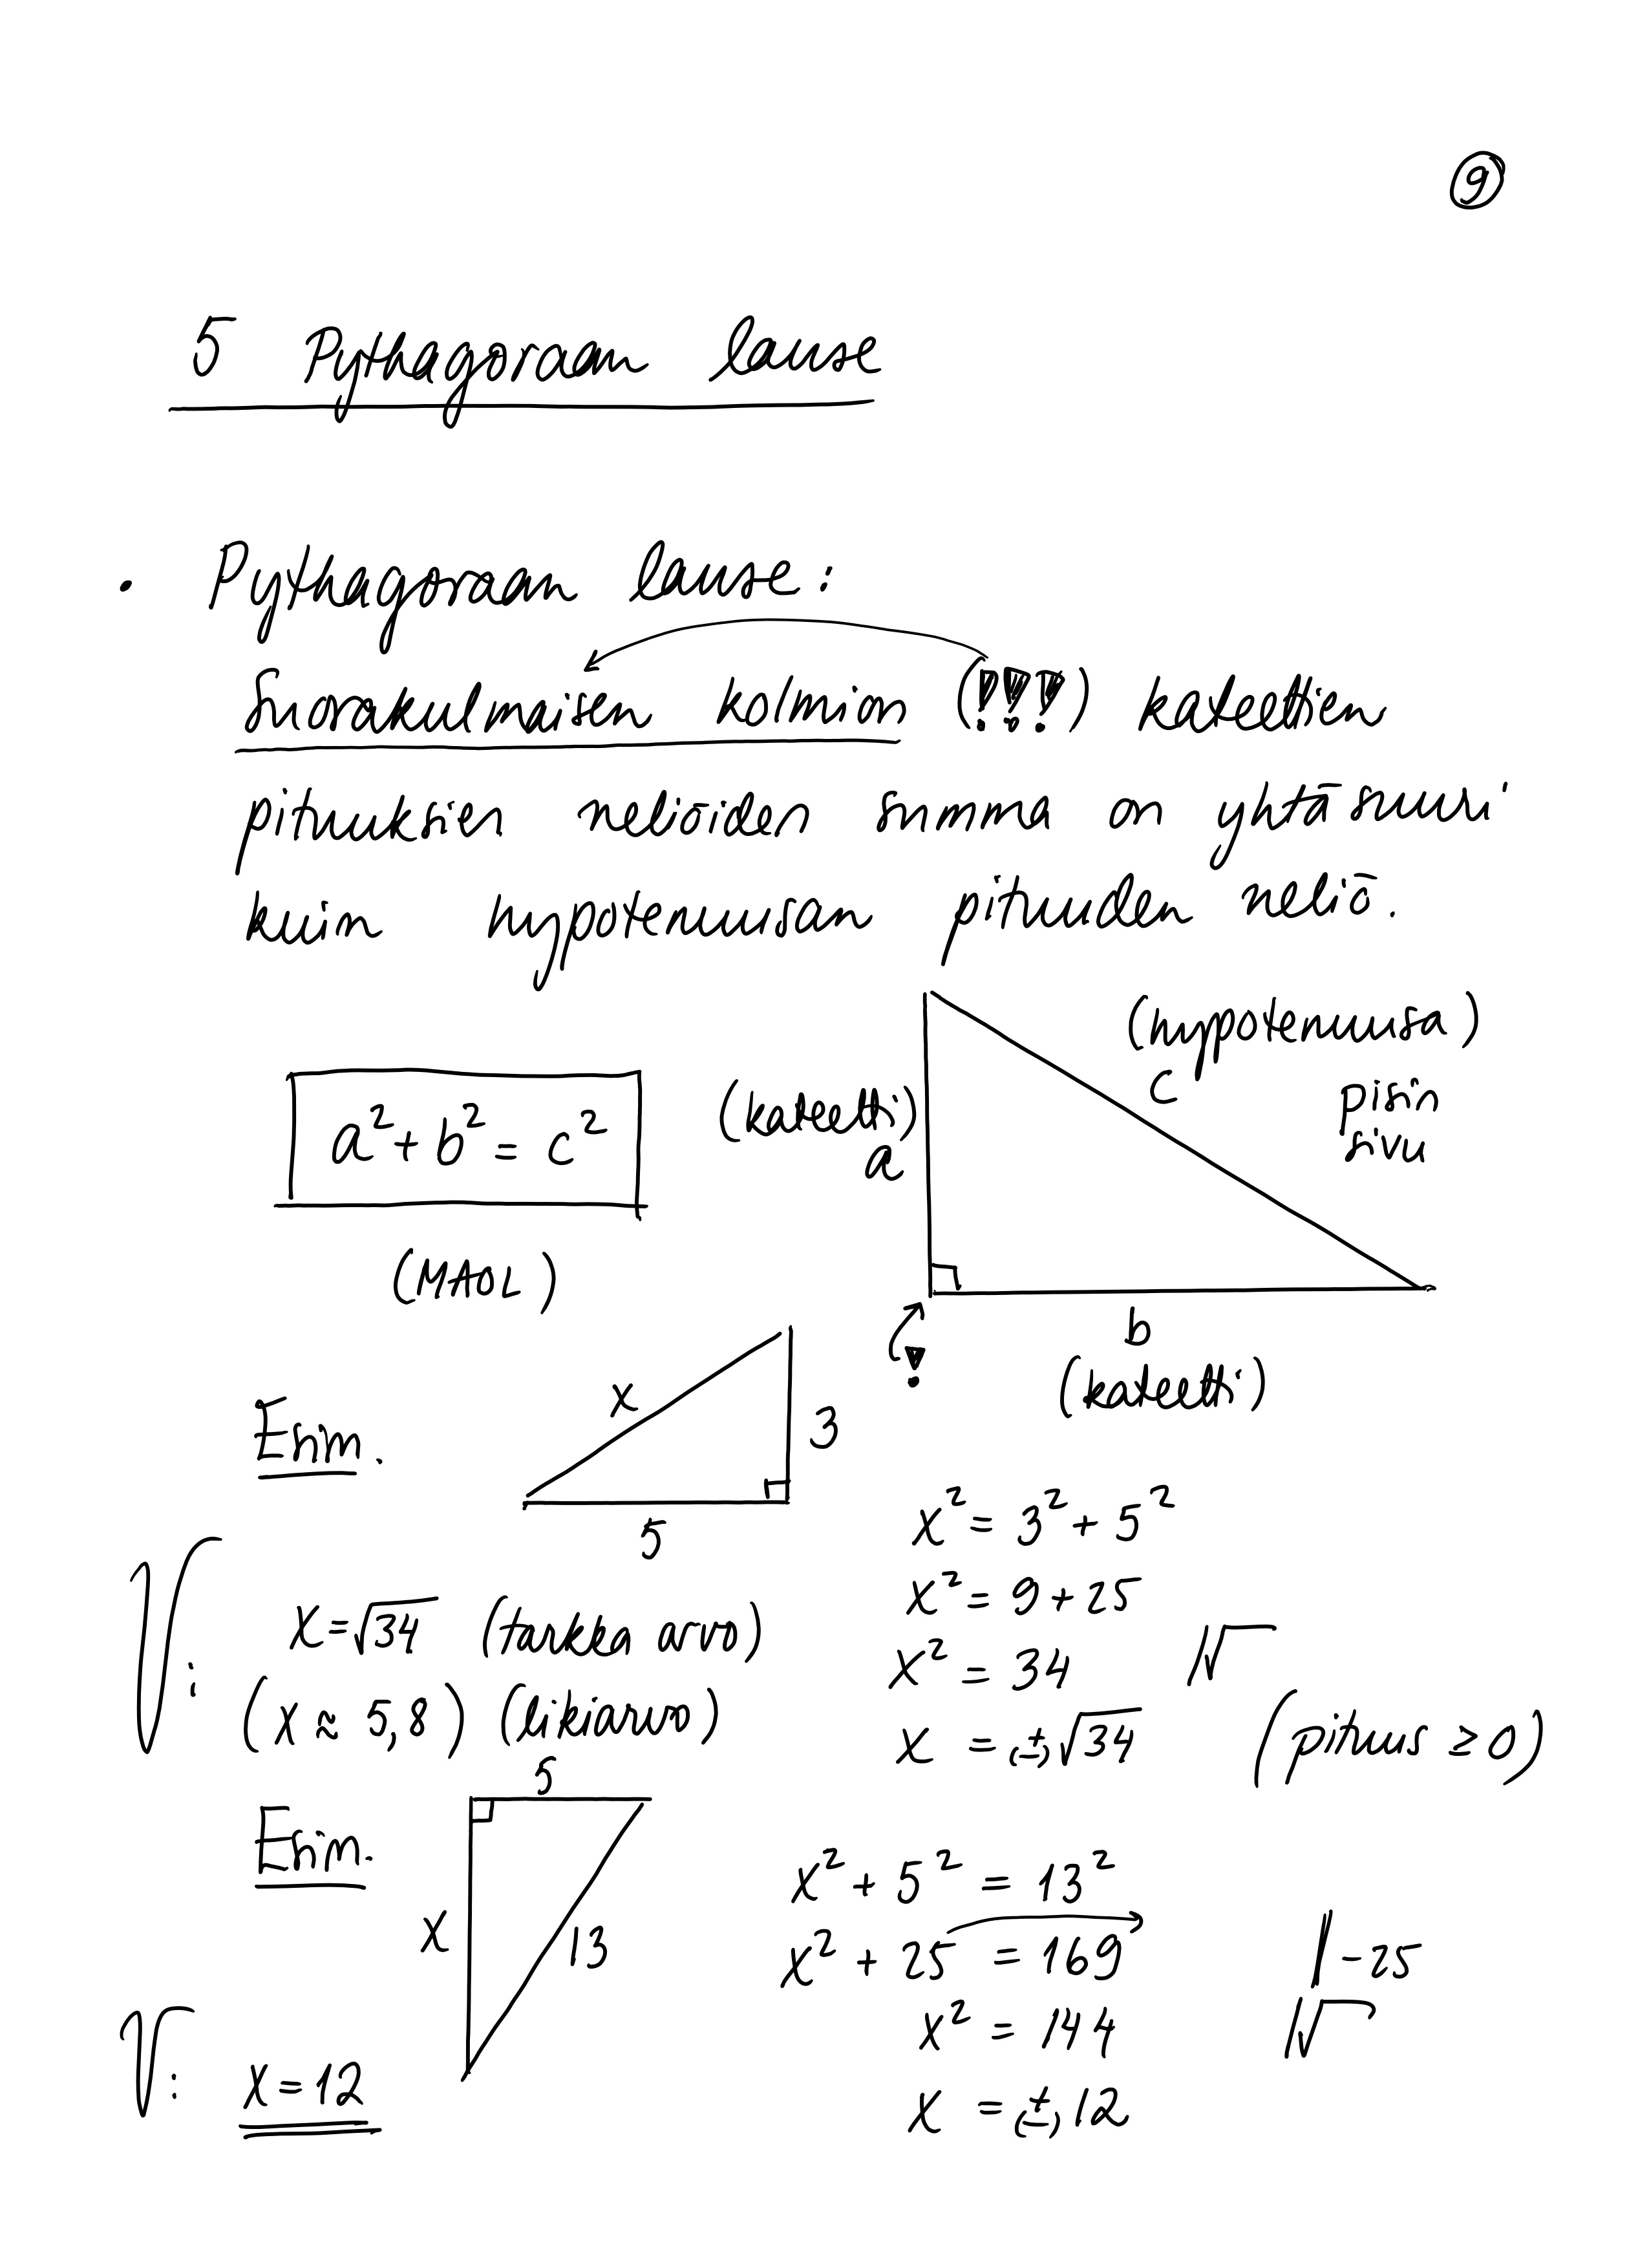 9
5 Pythagoraan lause
• Pythagoraan lause:
Suorakulmaisen kolmion (!!!) kateettien
pituuksien neliöiden summa on yhtäsuuri
kuin hypotenuusan pituuden neliö.
(hypotenuusa)
c
pisin
sivu
(kateetti)
a
a² + b² = c²
(MAOL)
!
b
(kateetti)
Esim.
x
3
5
x² = 3² + 5²
x² = 9 + 25
x² = 34 |√
x = (±) √34 (pituus ≥ 0)
V: x = √34 (tarkka arvo)
(x ≈ 5,8) (likiarvo)
Esim.
5
x
13
x² + 5² = 13²
x² + 25 = 169 | -25
x² = 144 |√
x = (±) 12
V: x = 12